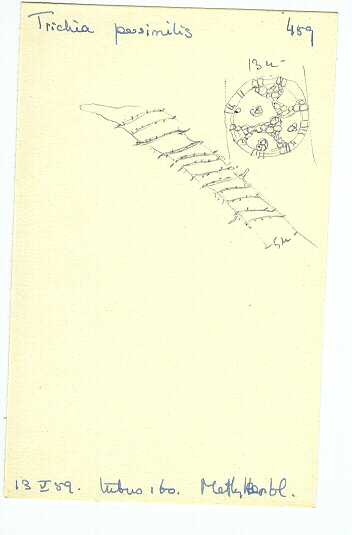 Trichia persimilis 489
13 µ
5µ
13 V 59. tubus 160. Methylenbl.